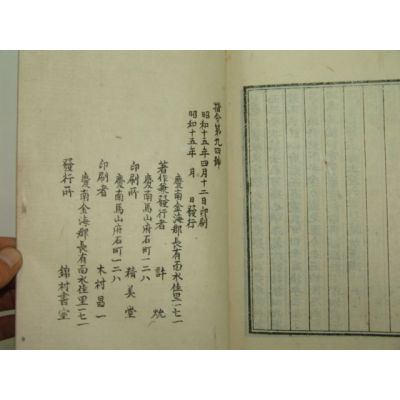 指令第九四號
昭和十五年四月十二日印刷
昭和十五年 月 日發行
慶南金海郡長有面水佳里一七一
著作兼發行者 許 燦
慶南馬山府石町一二八
印刷所 精美堂
慶南馬山府石町一二八
印刷者 木村昌一
慶南金海郡長有面水佳里一七一
發行所 錦村書室